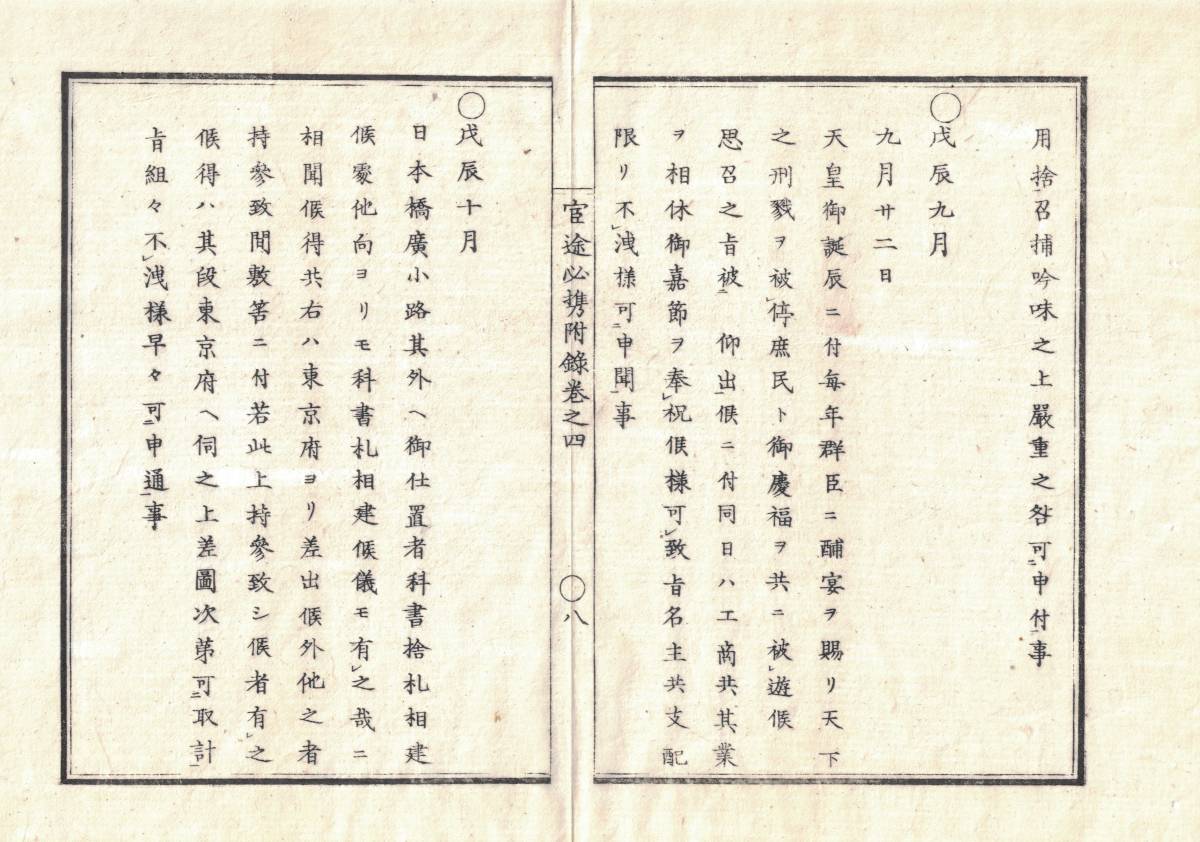 用捨召捕吟味之上嚴重之咎可申付事
○戊辰九月
九月廿二日
天皇御誕辰ニ付每年群臣ニ酺宴ヲ賜リ天下
之刑戮ヲ被停庶民ト御慶福ヲ共ニ被遊候
思召之旨被 仰出候ニ付同日ハ工商共其業
ヲ相休御嘉節ヲ奉祝候樣可致旨名主共支配
限リ不洩樣可申聞事
官途必携附錄卷之四
○八
○戊辰十月
日本橋廣小路其外ヘ御仕置者科書捨札相建
候處他向ヨリモ科書札相建候儀モ有之哉ニ
相聞候得共右ハ東京府ヨリ差出候外他之者
持參致間敷筈ニ付若此上持參致シ候者有之
候得ハ其段東京府ヘ伺之上差圖次第可取計
旨組々不洩樣早々可申通事